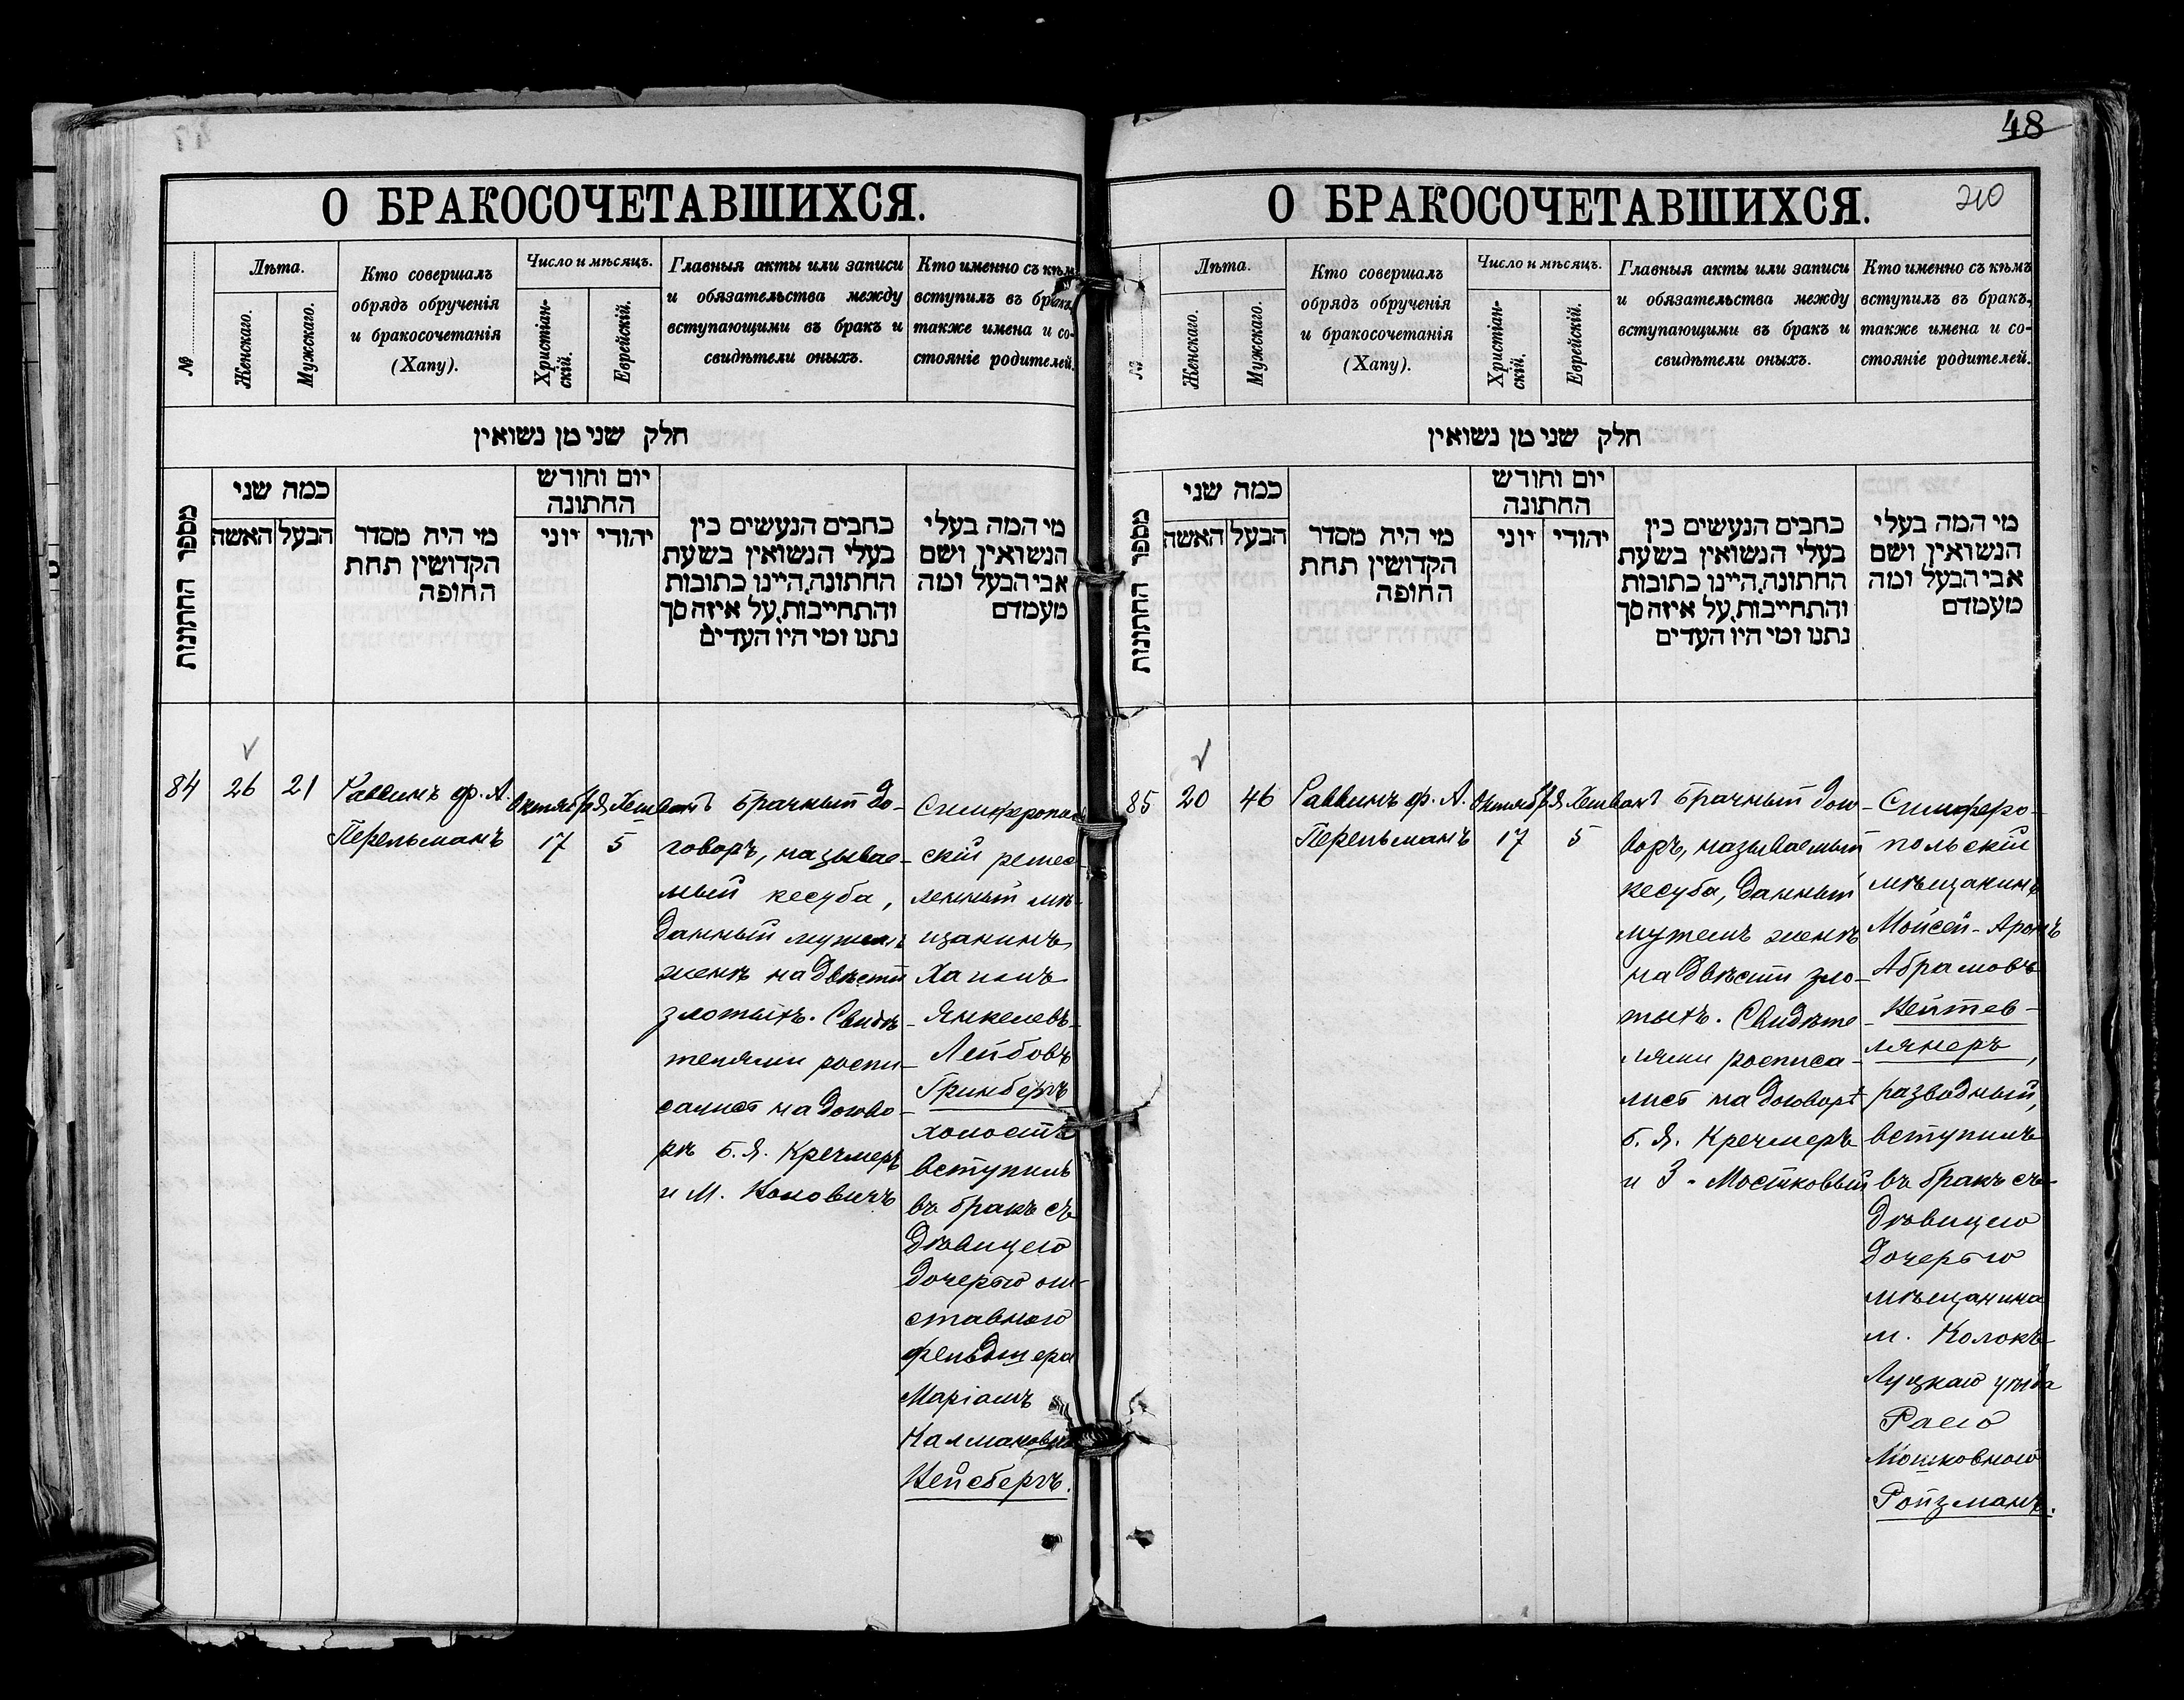 48
О БРАКОСОЧЕТАВШИХСЯ.
№
Лѣта.
Женскаго.
Мужскаго.
Кто совершалъ
обрядъ обрученія
и бракосочетанія
(Хапу).
Число и мѣсяцъ.
Христіан-
скій.
Еврейскій.
Главныя акты или записи
и обязательства между
вступающими въ бракъ и
свидѣтели оныхъ.
Кто именно съ кѣмъ
вступилъ въ бракъ,
также имена и со-
стояніе родителей.
חלק שני מן נשואין
מספר החתונות
כמה שני
האשה
הבעל
מי היה מסדר
הקדושין תחת
החופה
יום וחודש
החתונה
יוני
יהודי
כתבים הנעשים בין
בעלי הנשואין בשעת
החתונה, היינו כתובות
והתחייבות, על איזה סך
נתנו ומי היו העדים
מי המה בעלי
הנשואין ושם
אבי הבעל ומה
מעמדם
84
26
21
Раввинъ ф. А.
Перельманъ
Октября
17
Хешванъ
5
Брачный до-
говоръ, называе-
мый кесуба,
данный мужемъ
женѣ на двѣсти
злотыхъ. Свидѣ-
телями роспи-
сались на догово-
рѣ Б. Я. Кречмеръ
и М.
Симферополь-
скій ремес-
ленный мѣ-
щанинъ
Хаимъ
Янкелевъ-
Лейбовъ
Гринбергъ
холостъ
вступилъ
въ бракъ съ
дѣвицею
дочерью от-
ставного
фельдшера
Маріамъ
Калмановной
Вейсбергъ.
О БРАКОСОЧЕТАВШИХСЯ.
210
№
Лѣта.
Женскаго.
Мужскаго.
Кто совершалъ
обрядъ обрученія
и бракосочетанія
(Хапу).
Число и мѣсяцъ.
Христіан-
скій.
Еврейскій.
Главныя акты или записи
и обязательства между
вступающими въ бракъ и
свидѣтели оныхъ.
Кто именно съ кѣмъ
вступилъ въ бракъ,
также имена и со-
стояніе родителей.
חלק שני מן נשואין
מספר החתונות
כמה שני
האשה
הבעל
מי היה מסדר
הקדושין תחת
החופה
יום וחודש
החתונה
יוני
יהודי
כתבים הנעשים בין
בעלי הנשואין בשעת
החתונה, היינו כתובות
והתחייבות, על איזה סך
נתנו ומי היו העדים
מי המה בעלי
הנשואין ושם
אבי הבעל ומה
מעמדם
85
20
46
Раввинъ ф. А.
Перельманъ
Октября
17
Хешванъ
5
Брачный дого-
воръ, называемый
кесуба, данный
мужемъ женѣ
на двѣсти зло-
тыхъ. Свидѣте-
лями росписа-
лись на договорѣ
Б. Я. Кречмеръ
и З. Мостковый
Симферо-
польскій
мѣщанинъ
Мойсей-Аронъ
Абрамовъ
лянеръ,
разводный,
вступилъ
въ бракъ съ
дѣвицею
дочерью
мѣщанина
м. Колокъ
Луцкаго уѣзда
Расею
Мошковною
Ройзманъ.